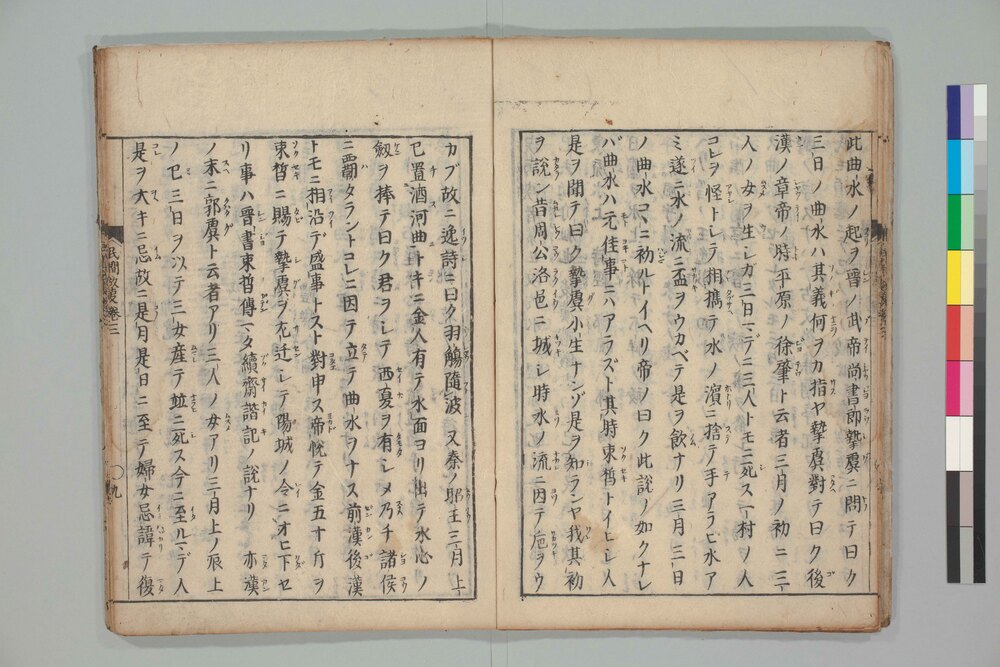 此曲水ノ起ヲ晋ノ武帝尚書郎摯虞ニ問テ曰ク
三日ノ曲水ハ其義何ヲカ指ヤ摯虞對テ曰ク後
漢ノ章帝ノ時平原ノ徐肇ト云者三月ノ初ニ三
人ノ女ヲ生シカ三日マデニ三人トモニ死ス一村ノ人
コレヲ怪トシテ相攜テ水ノ濱ニ捨テ手アラヒ水ア
ミ遂ニ水ノ流ニ盃ヲウカベテ是ヲ飲ナリ三月三日
ノ曲水コヽニ初ルトイヘリ帝ノ曰ク此説ノ如クナレ
バ曲水ハ元佳事ニハアラズト其時束晳トイヒシ人
是ヲ聞テ曰ク摯虞小生ナンゾ是ヲ知ランヤ我其初
ヲ説ン昔周公洛邑ニ城シ時水ノ流ニ因テ巵ヲウ
カブ故ニ逸詩ニ曰ク羽觴隨波又秦ノ昭王三月上
巳置酒河曲トキニ金人有テ水面ヨリ出テ水心ノ
劔ヲ捧テ曰ク君ヲシテ西夏ヲ有シメ乃チ諸侯
ニ覇タラントコレニ因テ立テ曲水ヲナス前漢後漢
トモニ相沿デ盛事トスト對申ス帝悦テ金五十斤ヲ
束晳ニ賜テ摯虞ヲ左迁シテ陽城ノ令ニオヒ下セ
リ事ハ晋書束晳傳マタ續齊諧記ノ説ナリ 亦漢
ノ末ニ郭虞ト云者アリ三人ノ女アリ三月上ノ辰上
ノ巳三日ヲ以テ三女産テ並ニ死ス今ニ至ルマデ人
是ヲ大キニ忌故ニ是月是日ニ至テ婦女忌諱テ復
民間
卷三
〇九